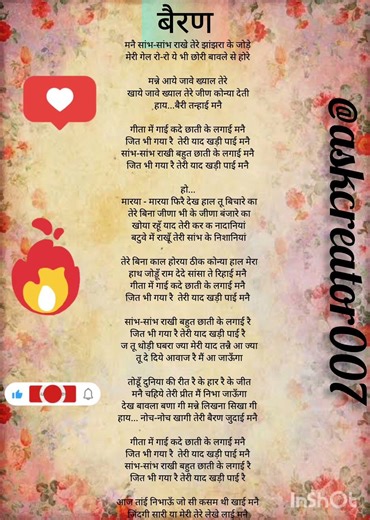 बैरण
मनै सांभ-सांभ राखे तेरे झांझरा के जोड़े
मेरी गेल रो-रो ये भी छोरी बावले से होरे
मन्ने आये जावे ख्याल तेरे
खाये जावे ख्याल तेरे जीण कोन्या देती
हाय...बैरी तन्हाई मनै
गीता में गाई कदे छाती के लगाई मनै
जित भी गया रै तेरी याद खड़ी पाई मनै
सांभ-सांभ राखी बहुत छाती के लगाई मनै
जित भी गया रै तेरी याद खड़ी पाई मनै
हो...
मारया - मारया फिरै देख हाल तू बिचारे का
तेरे बिना जीणा भी के जीणा बंजारे का
खोया रहूँ याद तेरी कर क नादानियां
बटुवे में राखूँ तेरी सांभ के निशानियां
तेरे बिना काल होरया ठीक कोन्या हाल मेरा
हाथ जोड़ूँ राम देदे सांसा ते रिहाई मनै
गीता में गाई कदे छाती के लगाई मनै
जित भी गया रै तेरी याद खड़ी पाई मनै
सांभ-सांभ राखी बहुत छाती के लगाई रै
जित भी गया रै तेरी याद खड़ी पाई रै
ज तू थोड़ी घबरा ज्या मेरी याद तन्नै आ ज्या
तू दे दिये आवाज रै मैं आ जाऊँगा
तोडूँ दुनिया की रीत रै के हार रै के जीत
मनै चहिये तेरी प्रीत मैं निभा जाऊँगा
देख बावला बणा गी मन्ने लिखना सिखा गी
हाय... नोच-नोच खागी तेरी बैरण जुदाई मनै
गीता में गाई कदे छाती के लगाई मनै
जित भी गया रै तेरी याद खड़ी पाई मनै
सांभ-सांभ राखी बहुत छाती के लगाई रै
जित भी गया रै तेरी याद खड़ी पाई रै
आज तांई निभाऊँ जो सी कसम थी खाई मनै
जिंदगी सारी या मेरी तेरे लेखे लाई मनै
@askcreator007
InShOt